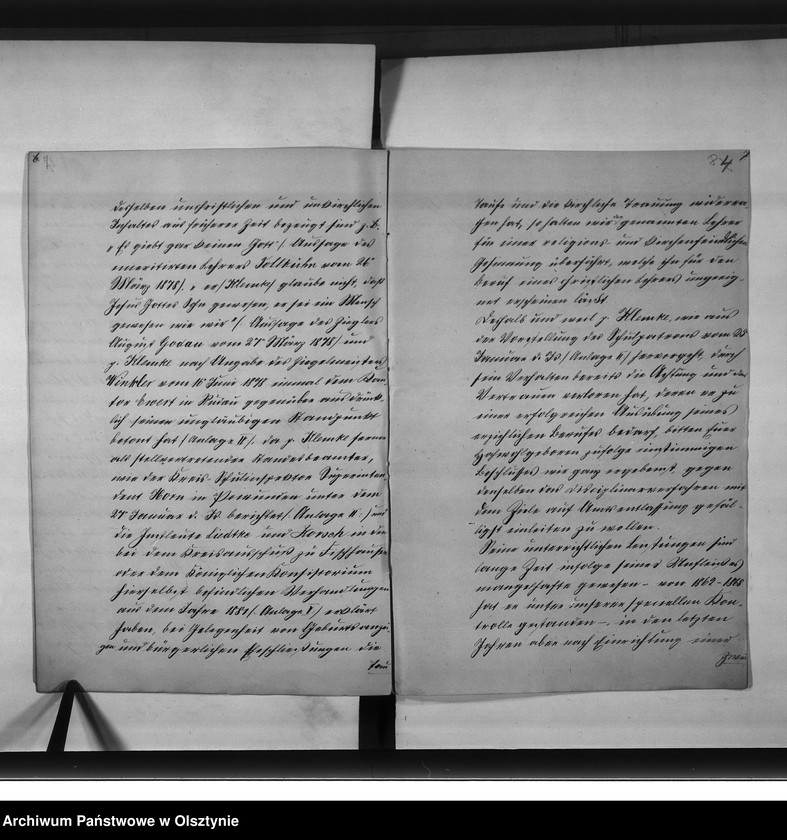 6
desselben unchristlichen und unkirchlichen
Inhaltes aus früherer Zeit bezeugt sind z. B.
„Es giebt gar keinen Gott“ /: Aussage des
emeritirten Lehrers vom 26
März 1878 /, „er /: Klemke :/ glaube nicht, daß
Jesus Gottes Sohn gewesen, er sei ein Mensch
gewesen wie wir“ /: Aussage des Zieglers
August Godau vom 27 März 1878 /: und
p. Klemke nach Angabe des Ziegelmeisters
Winkler vom 16 Juni 1878 einmal dem Kan
tor Ewert in gegenüber ausdrück
lich seinen ungläubigen Standpunkt
betont hat /: Anlage /. da p. Klemke ferner
als stellvertretender Standesbeamter,
wie der Kreis-Schulinspektor Superinten
dent Korn in Powunden unter dem
27 Januar d. Js. berichtet /: Anlage :/ und
die Instleute Liedtke und Korsch in den
bei dem Kreisausschuß zu Fischhausen
oder dem Königlichen Konsistorium
hierselbst befindlichen Verhandlungen
aus dem Jahre 1881 /: Anlage V / erklärt
haben, bei Gelegenheit von Geburtsanzei
gen und bürgerlichen Eheschließungen die
Tau
84 7
Taufe und die kirchliche Trauung widerra
then hat, so halten wir genannten Lehrer
für einer religions und kirchenfeindlichen
Gesinnung überführt, welche ihn für den
Beruf eines christlichen Lehrers ungeeig-
net erscheinen läßt.
Deshalb und weil p. Klemke, wie aus
der Vorstellung des Schulpatrons vom 25
Januar d. Js. /: Anlage /: hervorgeht, durch
sein Verhalten bereits die Achtung und das
Vertrauen verloren hat, deren er zu
einer erfolgreichen Ausübung seines
erziehlichen Berufes bedarf, bitten Euer
Hochwohlgeboren zufolge einstimmigen
Beschlusses wir ganz ergebenst, gegen
denselben das Disciplinarverfahren mit
dem Ziele auf Amtsentlassung gefäl-
ligst einleiten zu wollen.
Seine unterrichtlichen Leistungen sind
lange Zeit infolge seines Unfleißes
mangelhafte gewesen – von 1862-1868
hat er unter unserer speciellen Kon-
trolle gestanden –, in den letzten
Jahren aber nach Einrichtung einer
zwei
Archiwum Państwowe w Olsztynie